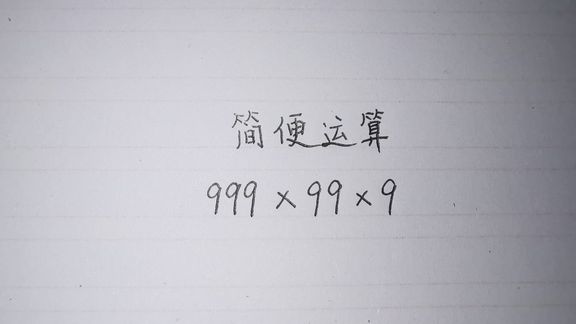 简便运算
999×99×9